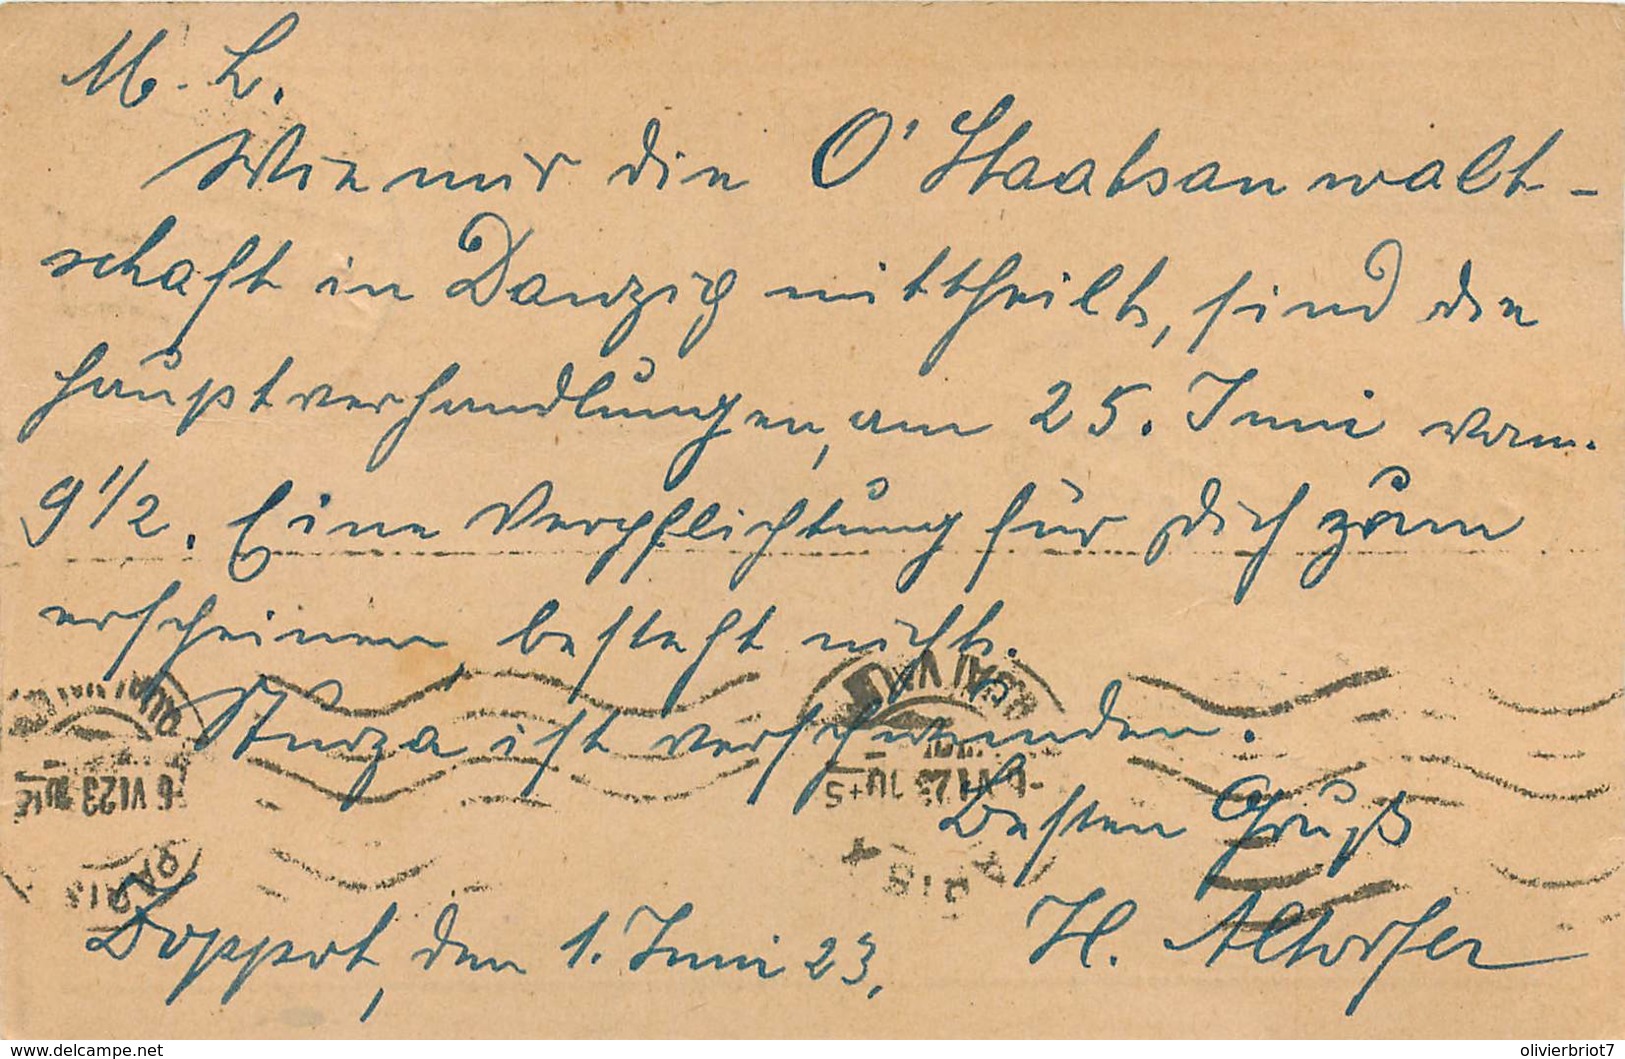 M. L.
Wie mir die O' Staatsanwalt-
schaft in Danzig mittheilt, sind die
Hauptverhandlungen am 25. Juni vorm.
9 1/2. Eine Verpflichtung für Dich zum
erscheinen, besteht nicht.
ist verschwunden.
Besten Gruß
Zoppot, den 1. Juni 23. H. Altorfer
6 VI 23
PARIS
delcampe.net
olivierbriot7